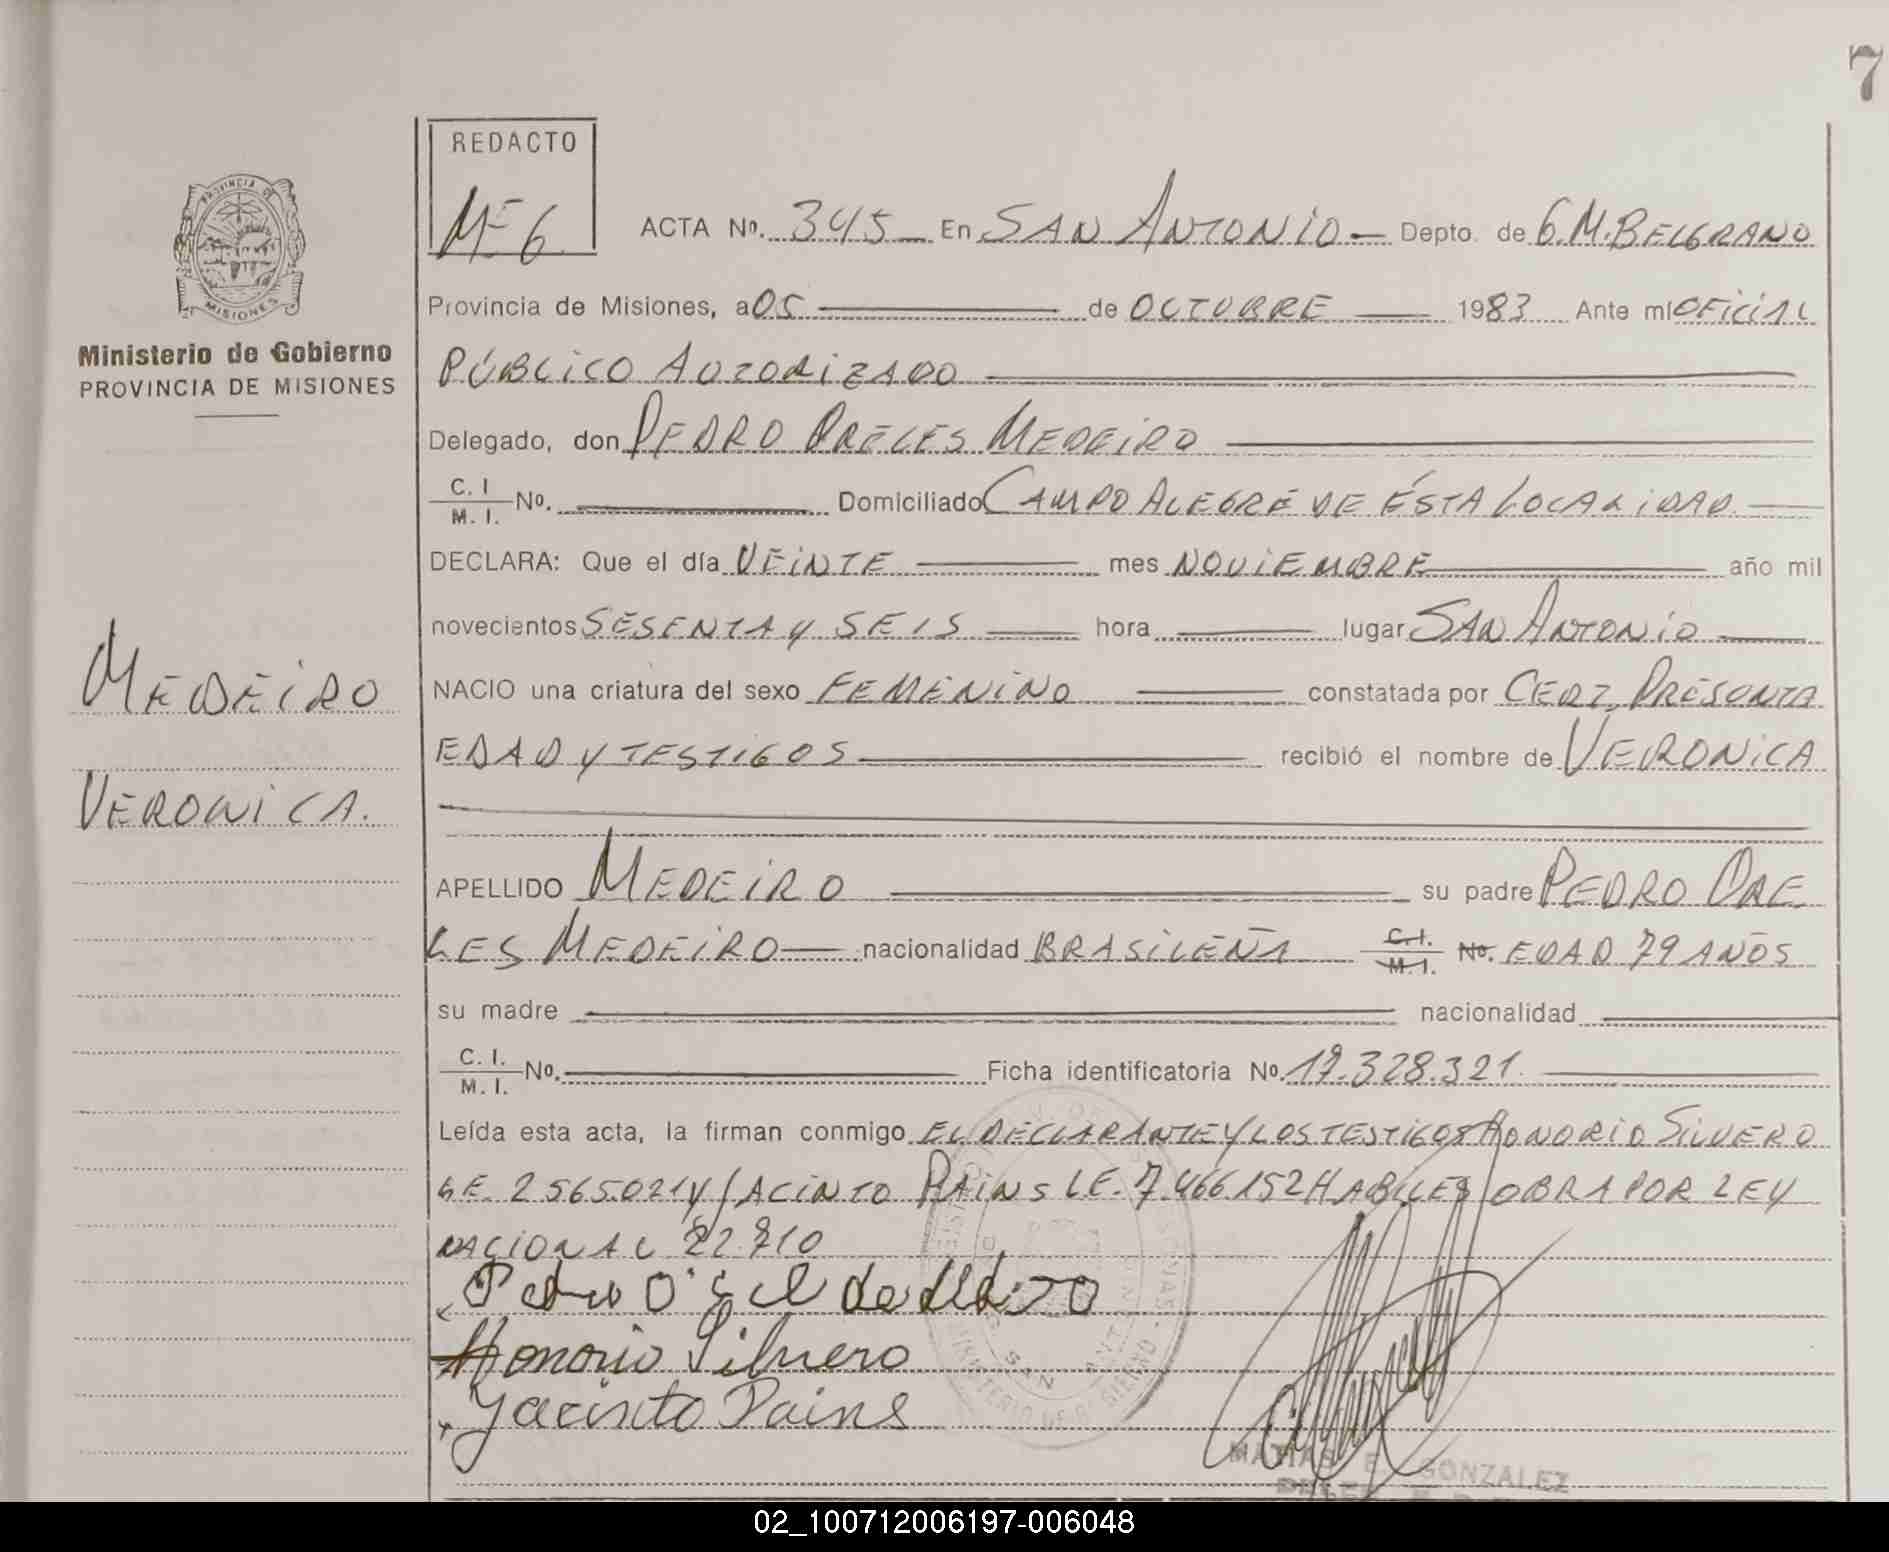 7
REDACTO
PROVINCIA DE
MISIONES
MEG
ACTA Nº. 345 En SAN ANTONIO Depto. de G.M. BELGRANO
Provincia de Misiones, a 05 de OCTUBRE 1983 Ante mi OFICIAL
Ministerio de Gobierno
PROVINCIA DE MISIONES
PÚBLICO AUTORIZADO
Delegado, don PEDRO ORELES MEDEIRO
C. I
M. I. Nº. Domiciliado CAMPO ALEGRE DE ÉSTA LOCALIDAD
DECLARA: Que el día VEINTE mes NOVIEMBRE año mil
novecientos SESENTA Y SEIS hora lugar SAN ANTONIO
MEDEIRO
NACIO una criatura del sexo FEMENINO constatada por CERT. PRESUNTA
EDAD Y TESTIGOS recibió el nombre de VERONICA
VERONICA.
APELLIDO MEDEIRO su padre PEDRO ORE
LES MEDEIRO nacionalidad BRASILEÑA C. I. M. I. Nº. EDAD 79 AÑOS
su madre nacionalidad
C. I.
M. I. Nº. Ficha identificatoria Nº. 17.328.321.
Leída esta acta, la firman conmigo EL DECLARANTE Y LOS TESTIGOS HONORIO SILVERO
LE. 2565.021 Y JACINTO PAINS LE. 7.466.152 HABILES OBRA POR LEY
NACIONAL 22.710
Honorio Silvero
Jacinto Pains
MATIAS E. GONZALEZ
02_100712006197-006048